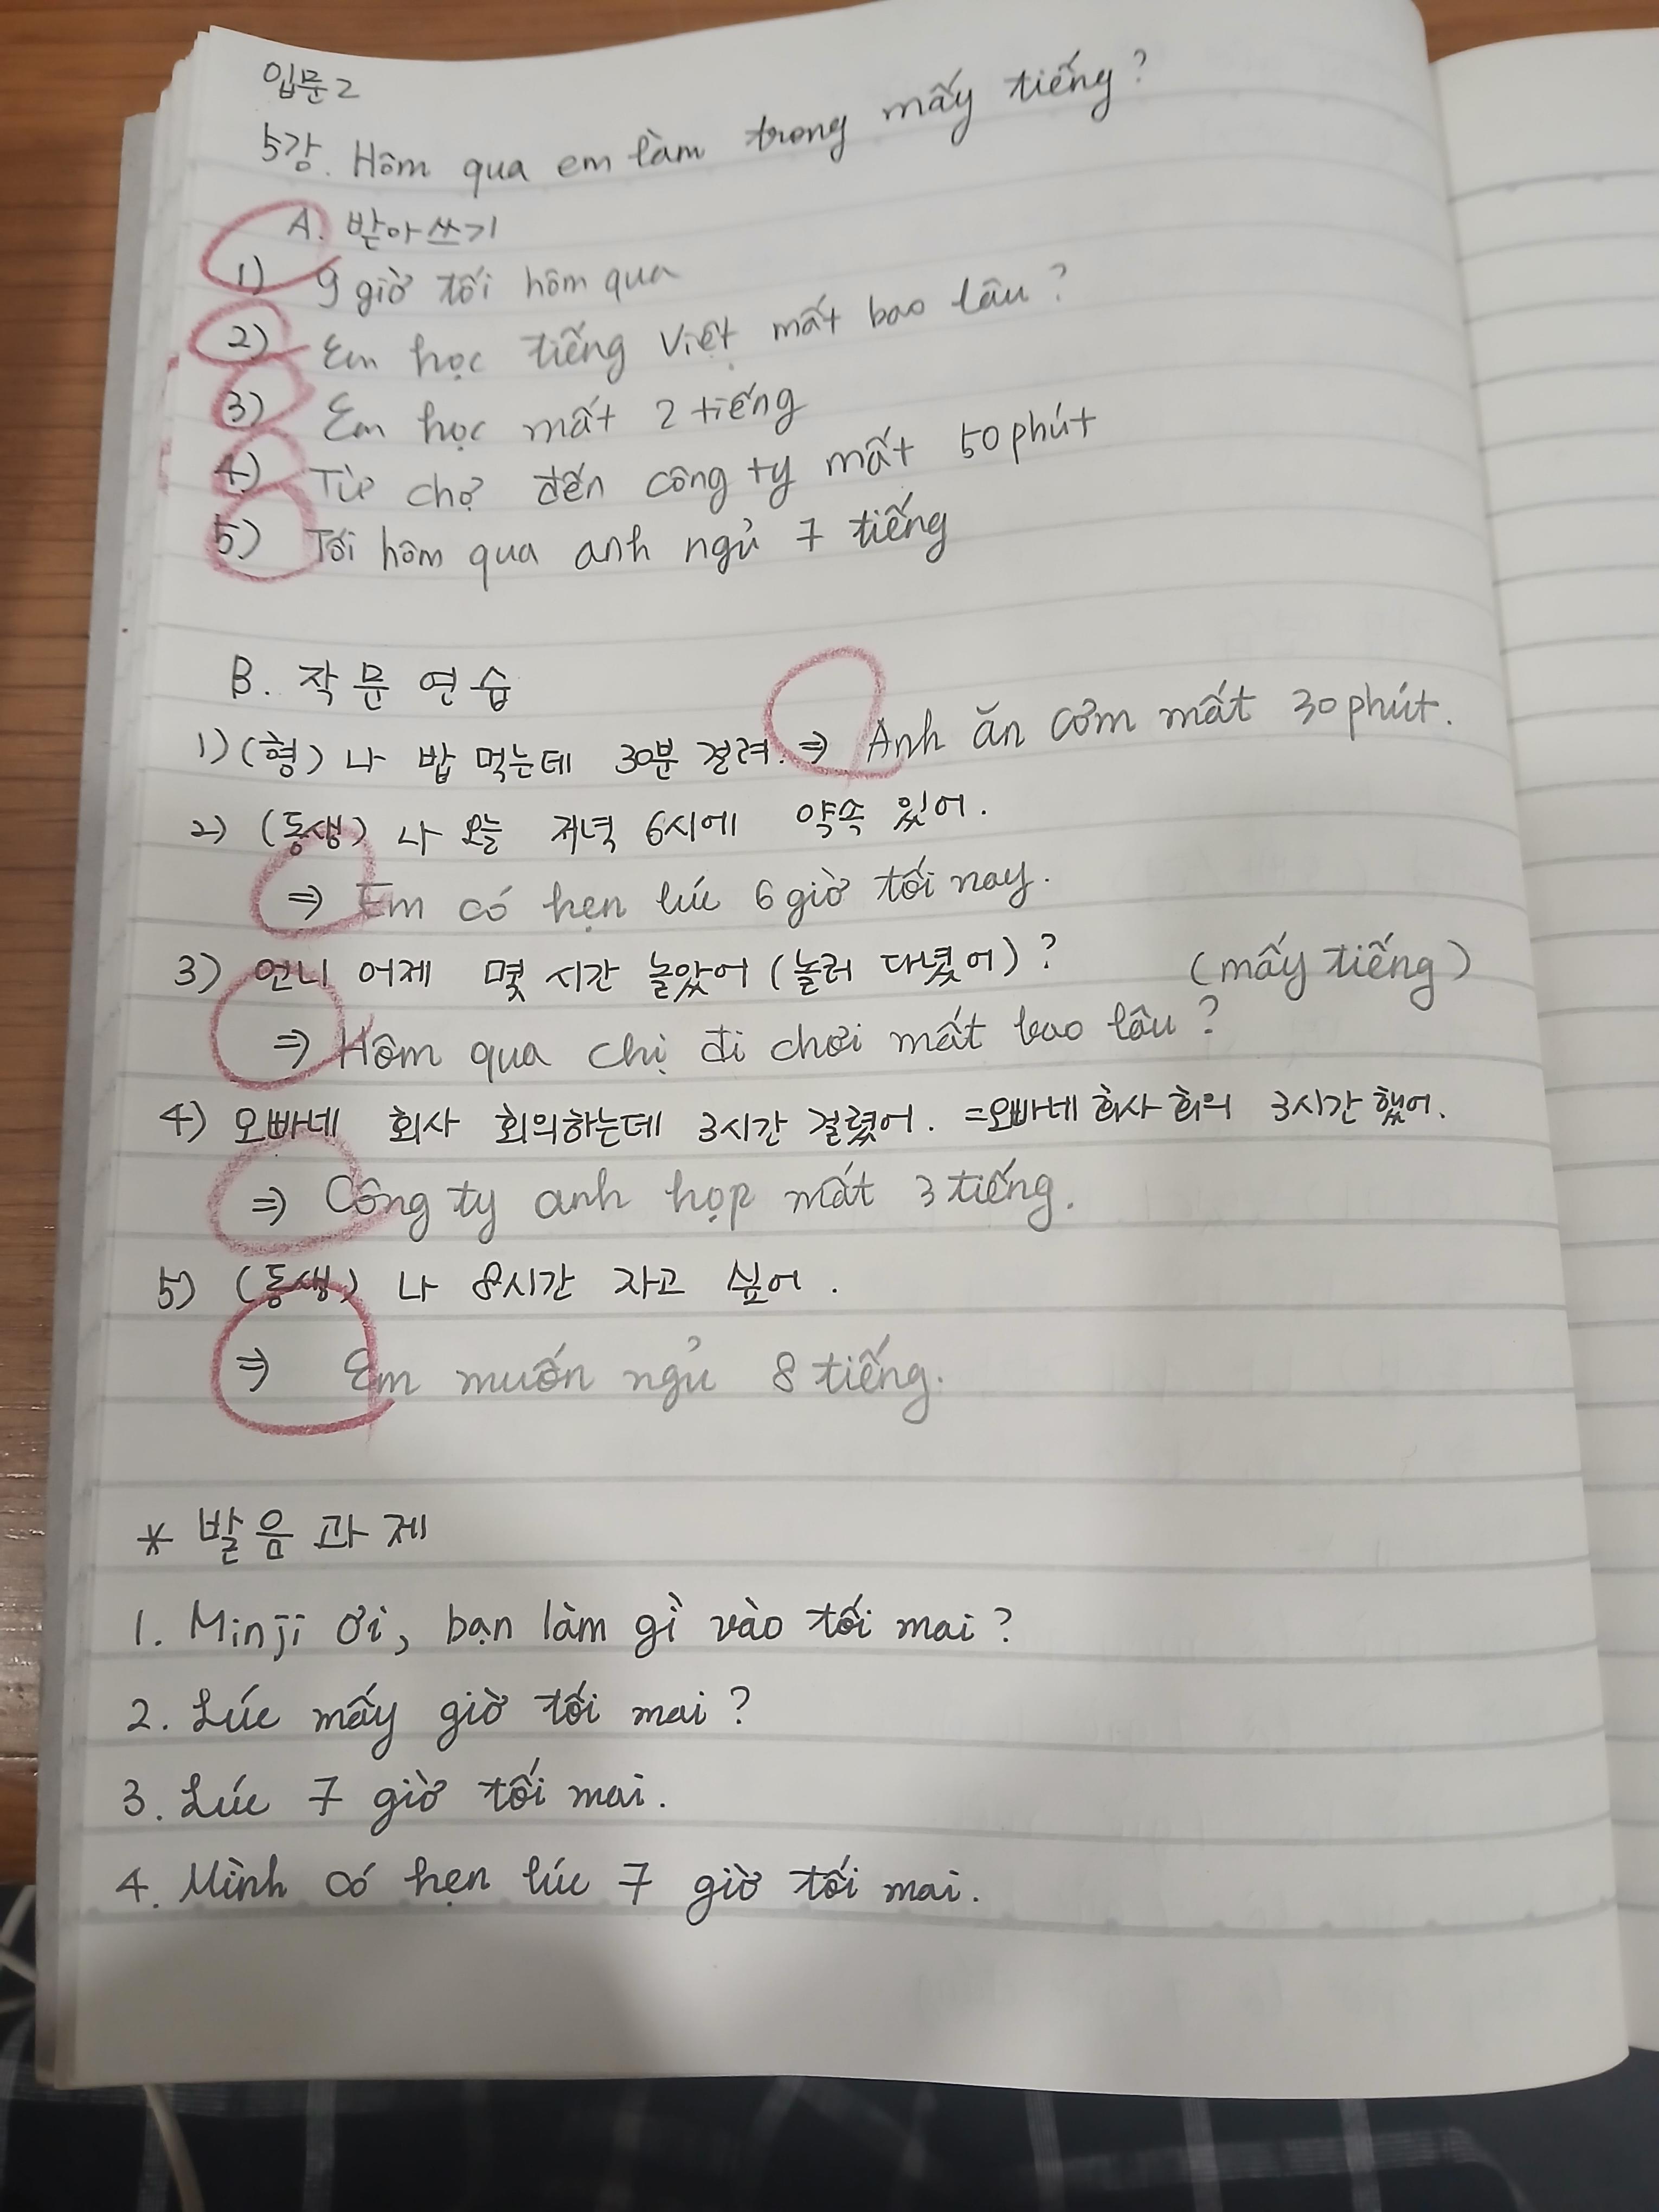 입문2
5강. Hôm qua em làm trong mấy tiếng?
A. 받아쓰기
1) 9 giờ tối hôm qua
2) Em học tiếng Việt mất bao lâu?
3) Em học mất 2 tiếng
4) Từ chợ đến công ty mất 50 phút
5) Tối hôm qua anh ngủ 7 tiếng
B. 작문 연습
1) (형) 나 밥 먹는데 30분 걸려. ⇒ Anh ăn cơm mất 30 phút.
2) (동생) 나 오늘 저녁 6시에 약속 있어.
⇒ Em có hẹn lúc 6 giờ tối nay.
3) 언니 어제 몇 시간 놀았어 (놀러 다녔어)? (mấy tiếng)
⇒ Hôm qua chị đi chơi mất bao lâu?
4) 오빠네 회사 회의하는데 3시간 걸렸어. =오빠네 회사 회의 3시간 했어.
⇒ Công ty anh họp mất 3 tiếng.
5) (동생) 나 8시간 자고 싶어.
⇒ Em muốn ngủ 8 tiếng.
* 발음 과제
1. Minji ơi, bạn làm gì vào tối mai?
2. Lúc mấy giờ tối mai?
3. Lúc 7 giờ tối mai.
4. Mình có hẹn lúc 7 giờ tối mai.